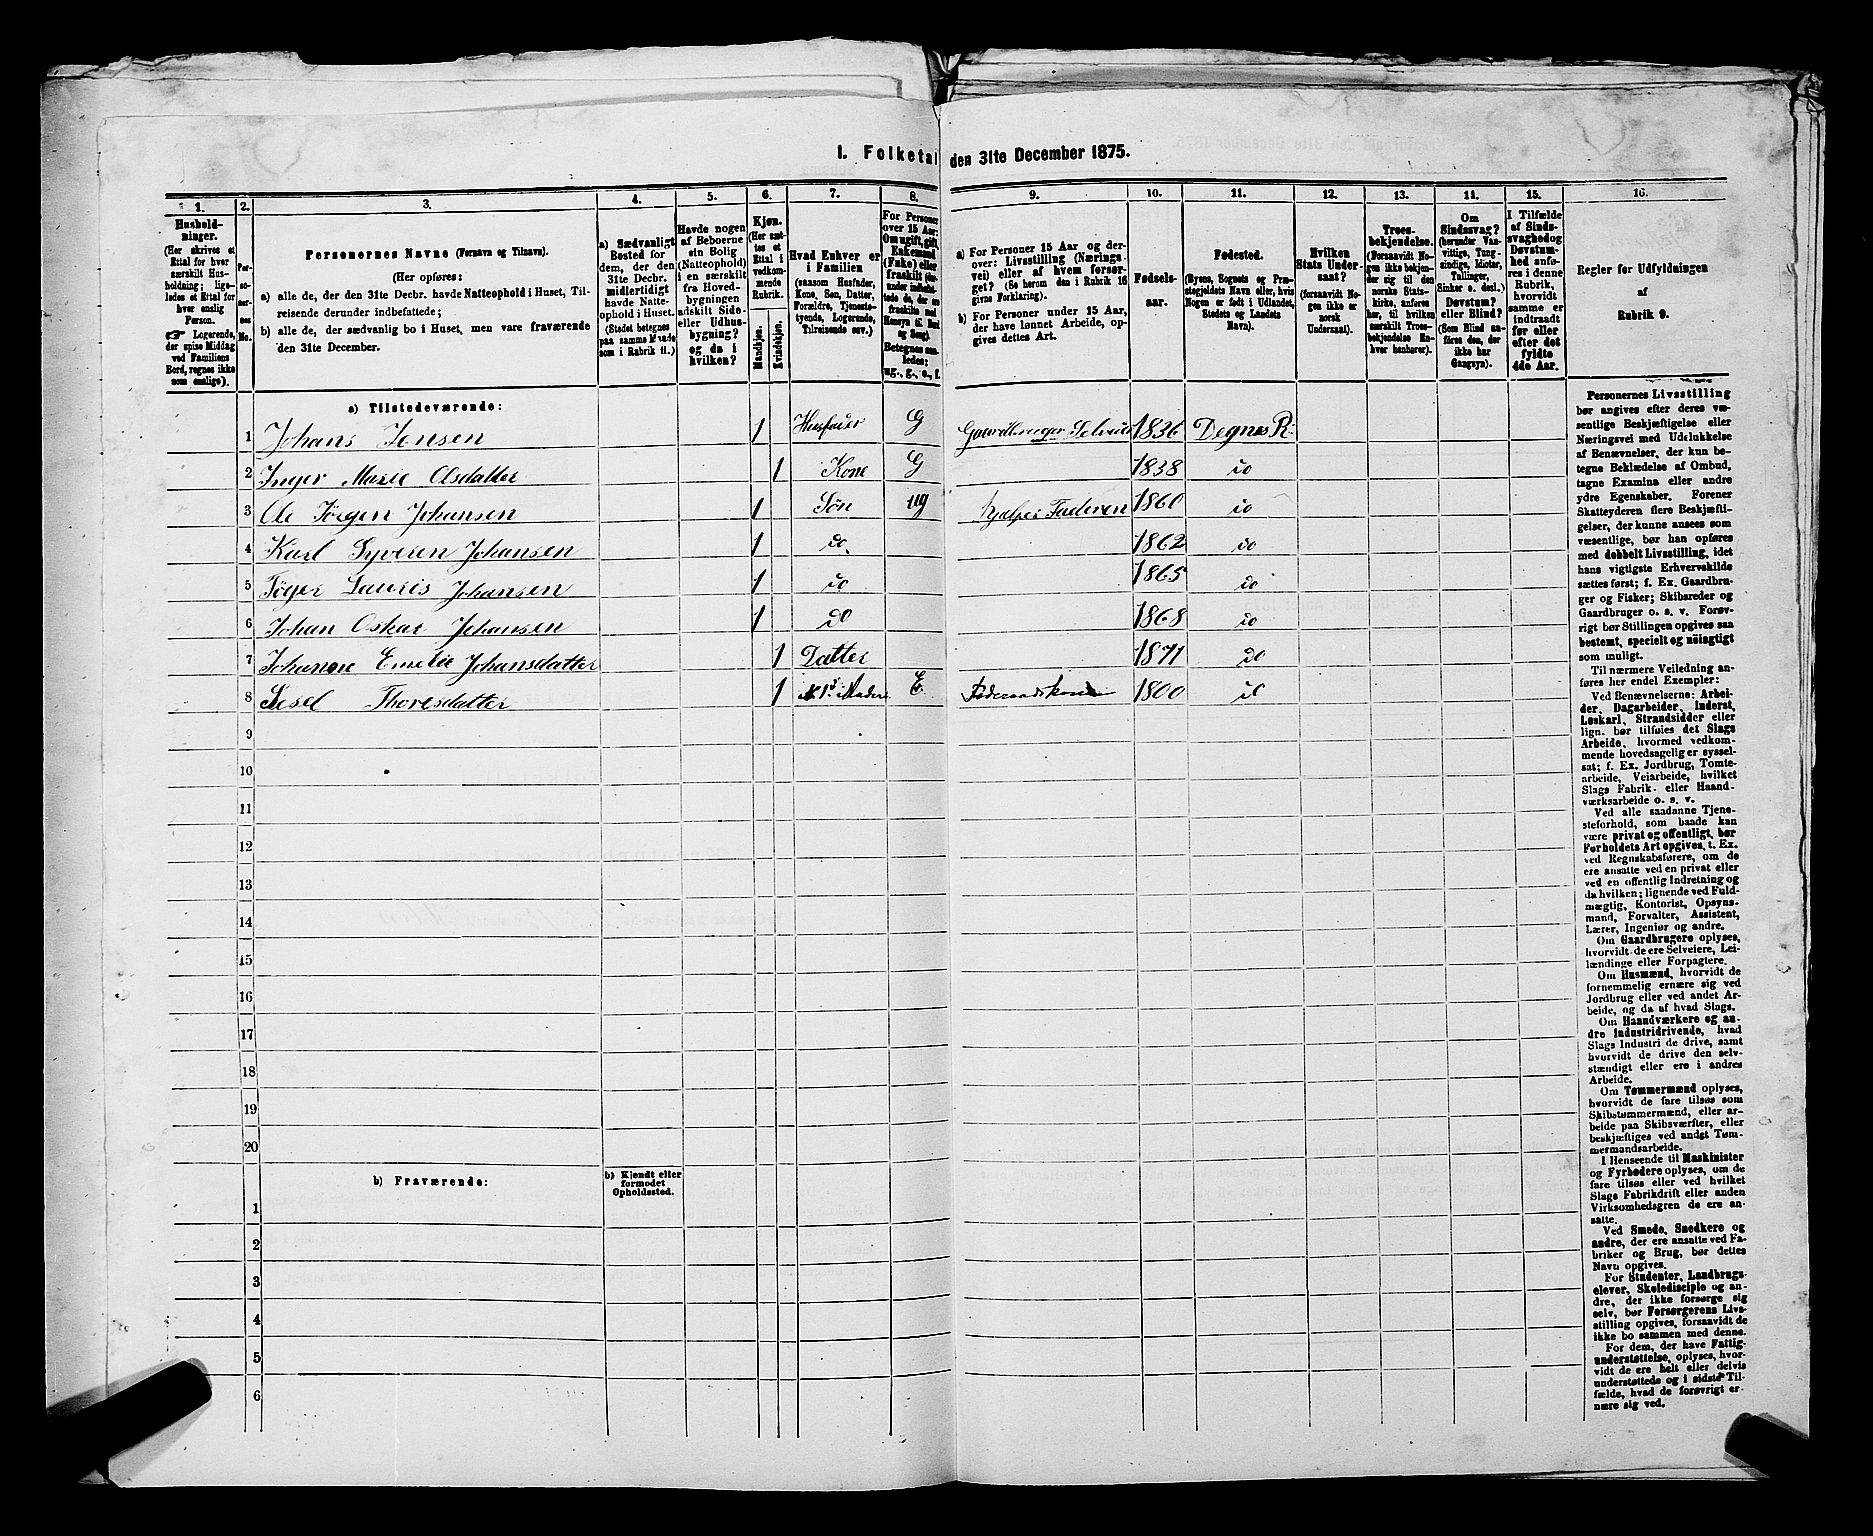 I. Folketal den 31te December 1875.
1. 2. 3. 4. 5. 6. 7. 8. 9. 10. 11. 12. 13. 14. 15. 16.
Hushold-
ninger.
(Her skrives et
Ettal for hver
særskilt Hus-
holdning; lige-
ledes et Ettal for
hver enslig
Person.
☞ Logerende,
der spise Middag
ved Familiens
Bord, regnes ikke
som enslige).
Per-
so-
ner-
nes
No.
Personernes Navne (Fornavn og Tilnavn).
(Her opføres:
a) alle de, der den 31te Decbr. havde Natteophold i Huset, Til-
reisende derunder indbefattede;
b) alle de, der sædvanlig bo i Huset, men vare fraværende
den 31te December.
a) Sædvanligt
Bosted for
dem, der den
31te Decbr.
midlertidigt
havde Natte-
ophold i Huset.
(Stedet betegnes
paa samme Maade
som i Rubrik 11.)
Havde nogen
af Beboerne
sin Bolig
(Natteophold)
i en særskilt
fra Hoved-
bygningen
adskilt Side-
eller Udhus-
bygning?
og da i
hvilken?
Kjøn.
(Her sæt-
tes et
Ettal i
vedkom-
mende
Rubrik.
Mandkjøn.
Kvindekjøn.
Hvad Enhver er
i Familien
(saasom Husfader,
Kone, Søn, Datter,
Forældre, Tjeneste-
tyende, Logerende,
Tilreisende osv.)
For Personer
over 15 Aar:
Om ugift, gift,
Enkemand
(Enke) eller
fraskilt
Betegnes saa-
ledes:
ug., g., e., f.
a) For Personer 15 Aar og der-
over: Livsstilling (Nærings-
vei) eller af hvem forsør-
get? (Se herom den i Rubrik 16
givne Forklaring).
b) For Personer under 15 Aar,
der have lønnet Arbeide, op-
gives dettes Art.
Fødsels-
aar.
Fødested.
(Byens, Sognets og Præ-
stegjeldets Navn eller, hvis
Nogen er født i Udlandet,
Stedets og Landets
Navn).
Hvilken
Stats Under-
saat?
(forsaavidt No-
gen ikke er
norsk
Undersaat).
Troes-
bekjendelse.
(Forsaavidt No-
gen ikke bekjen-
der sig til den
norske Stats-
kirke, anføres
her, til hvilken
særskilt Troes-
bekjendelse En-
hver henhører).
Om
Sindssvag?
(herunder Van-
vittige, Tung-
sindige, Idioter,
Tullinger,
Sinker o. desl.)
Døvstum?
eller Blind?
(Som Blind an-
føres den, der
ikke har
Gangsyn).
I Tilfælde
af Sinds-
svaghed og
Døvstum-
hed anfø-
res i denne
Rubrik,
hvorvidt
samme er
indtraadt
før eller
efter det
fyldte
4de Aar.
Regler for Udfyldningen
af
Rubrik 9.
a) Tilstedeværende:
1 Johans Jensen 1 Husfader G Gaardbruger Selveier 1836 Degnes P.
2 Inger Marie Olsdatter 1 Kone G 1838 do
3 Ole Jørgen Johansen 1 Søn ug hjælper Faderen 1860 do
4 Karl Syveren Johansen 1 do 1862 do
5 Tøger Lauris Johansen 1 do 1865 do
6 Johan Oskar Johansen 1 do 1868 do
7 Johanne Emelie Johansdatter 1 Datter 1871 do
8 Sisel Thoresdatter 1 Moder E Føderaadskone 1800 do
9
10
11
12
13
14
15
16
17
18
19
20
b) Fraværende: b) Kjendt eller
formodet
Opholdssted.
1
2
3
4
5
6
Personernes Livsstilling
bør angives efter deres væ-
sentlige Beskjæftigelse eller
Næringsvei med Udelukkelse
af Benævnelser, der kun be-
tegne Beklædelse af Ombud,
tagne Examina eller andre
ydre Egenskaber. Forener
Skatteyderen flere Beskjæfti-
gelser, der kunne ansees som
væsentlige, bør han opføres
med dobbelt Livsstilling, idet
hans vigtigste Erhvervskilde
sættes først; f. Ex. Gaardbru-
ger og Fisker; Skibsreder og
Gaardbruger o. s. v. Forøv-
rigt bør Stillingen opgives saa
bestemt, specielt og nøiagtigt
som muligt.
Til nærmere Veiledning an-
føres her endel Exempler:
Ved Benævnelserne: Arbei-
der, Dagarbeider, Inderst,
Løskarl, Strandsidder eller
lign. bør tilføies det Slags
Arbeide, hvormed vedkom-
mende hovedsagelig er syssel-
sat; f. Ex. Jordbrug, Tomte-
arbeide, Veiarbeide, hvilket
Slags Fabrik- eller Haand-
værksarbeide o. s. v.
Ved alle saadanne Tjene-
steforhold, som baade kan
være privat og offentligt, bør
Forholdets Art opgives, t. Ex.
ved Regnskabsførere, om de
ere ansatte ved en privat eller
ved en offentlig Indretning og
da hvilken; lignende ved Fuld-
mægtig, Kontorist, Opsyns-
mand, Forvalter, Assistent,
Lærer, Ingeniør og andre.
Om Gaardbrugere oplyses,
hvorvidt de ere Selveiere, Lei-
lændinge eller Forpagtere.
Om Husmænd, hvorvidt de
fornemmelig ernære sig ved
Jordbrug eller ved andet Ar-
beide, og da af hvad Slags.
Om Haandværkere og an-
dre Industridrivende, hvad
Slags Industri de drive, samt
hvorvidt de drive den selv-
stændigt eller ere i andres
Arbeide.
Om Tømmermænd oplyses,
hvorvidt de fare tilsøs som
Skibstømmermænd, eller ar-
beide paa Skibsværfter, eller
beskjæftiges ved andet Tøm-
mermandsarbeide.
I Henseende til Maskinister
og Fyrbødere oplyses, om de
fare tilsøs eller ved hvilket
Slags Fabrikdrift eller anden
Virksomhedsgren de ere an-
satte.
Ved Smede, Snedkere og
andre, der ere ansatte ved Fa-
briker og Brug, bør dettes
Navn opgives.
For Studenter, Landbrugs-
elever, Skoledisciple og an-
dre, der ikke forsørge sig
selv, bør Forsørgerens Livs-
stilling opgives, forsaavidt de
ikke bo sammen med denne.
For dem, der have Fattig-
understøttelse, oplyses, hvor-
vidt de ere helt eller delvis
understøttede og i sidste Til-
fælde, hvad de forøvrigt er-
nære sig ved.